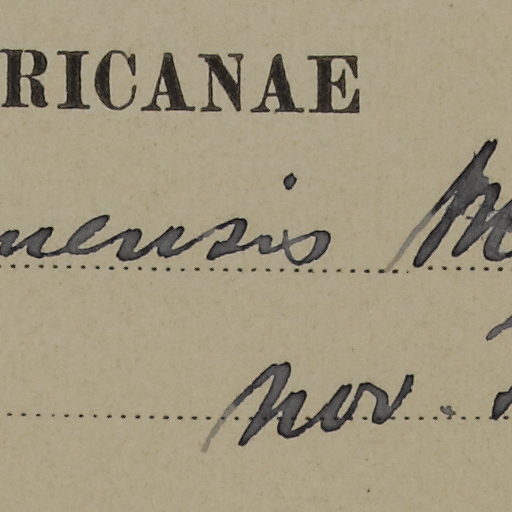 RICANAE
nensis M
nov.